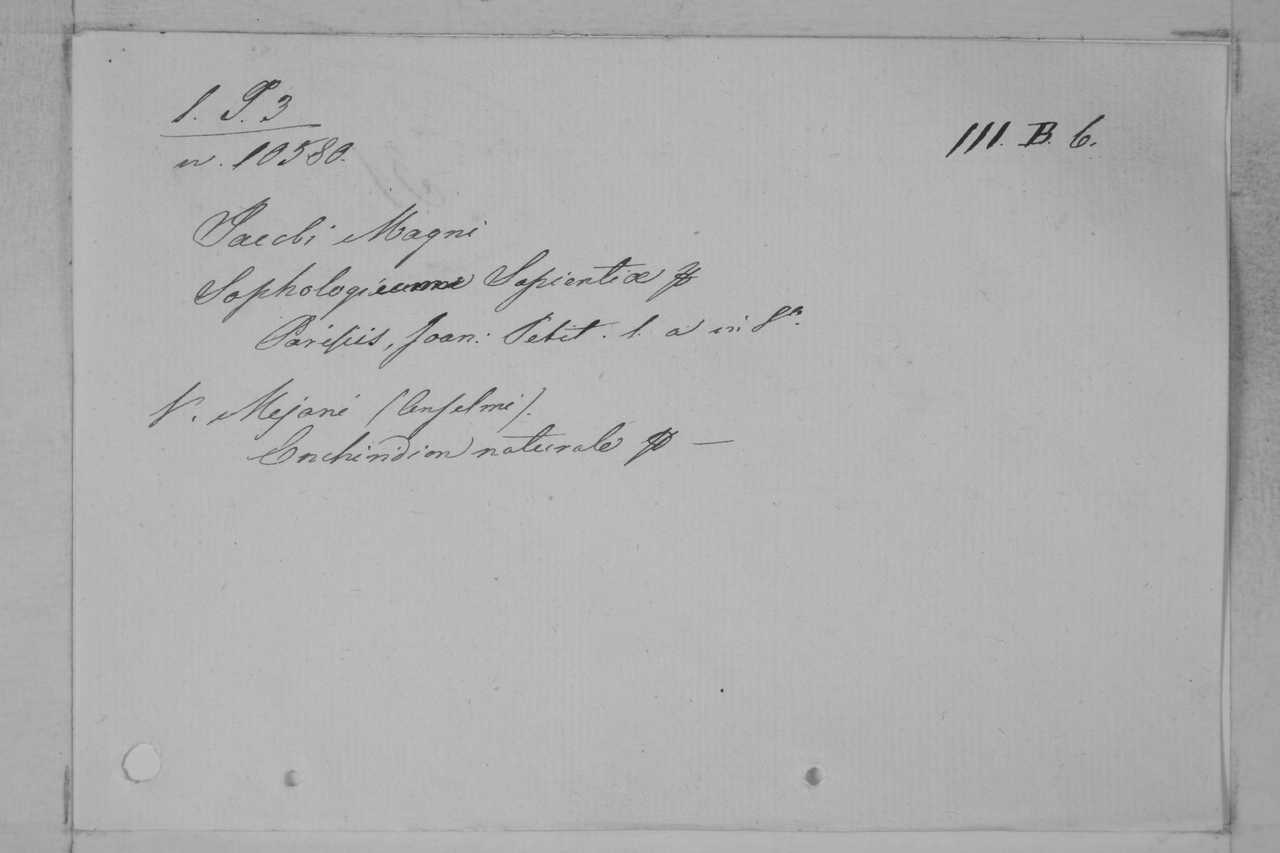 I. P. 3
n. 10580.
III. B. 6.
Jacobi Magni
Sophologium Sapientiæ
Parisiis, Joan: Petit. s. a in 8°.
V. Mejani (Anselmi).
Enchiridion naturale —